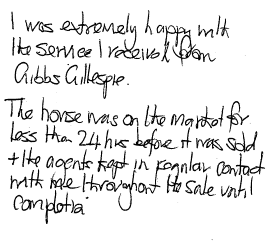 I was extremely happy with
the service I received from
Gibbs Gillespie.
The house was on the market for
less than 24 hrs before it was sold
+ the agents kept in regular contact
with me throughout the sale until
completion